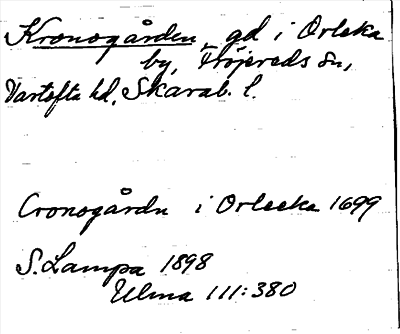 Kronogården, gd i Orleka
by, Fröjereds sn,
Vartofta hd, Skarab. l.
Cronogårdn i Orlecka 1699
S. Lampa 1898
Ulma 111:380